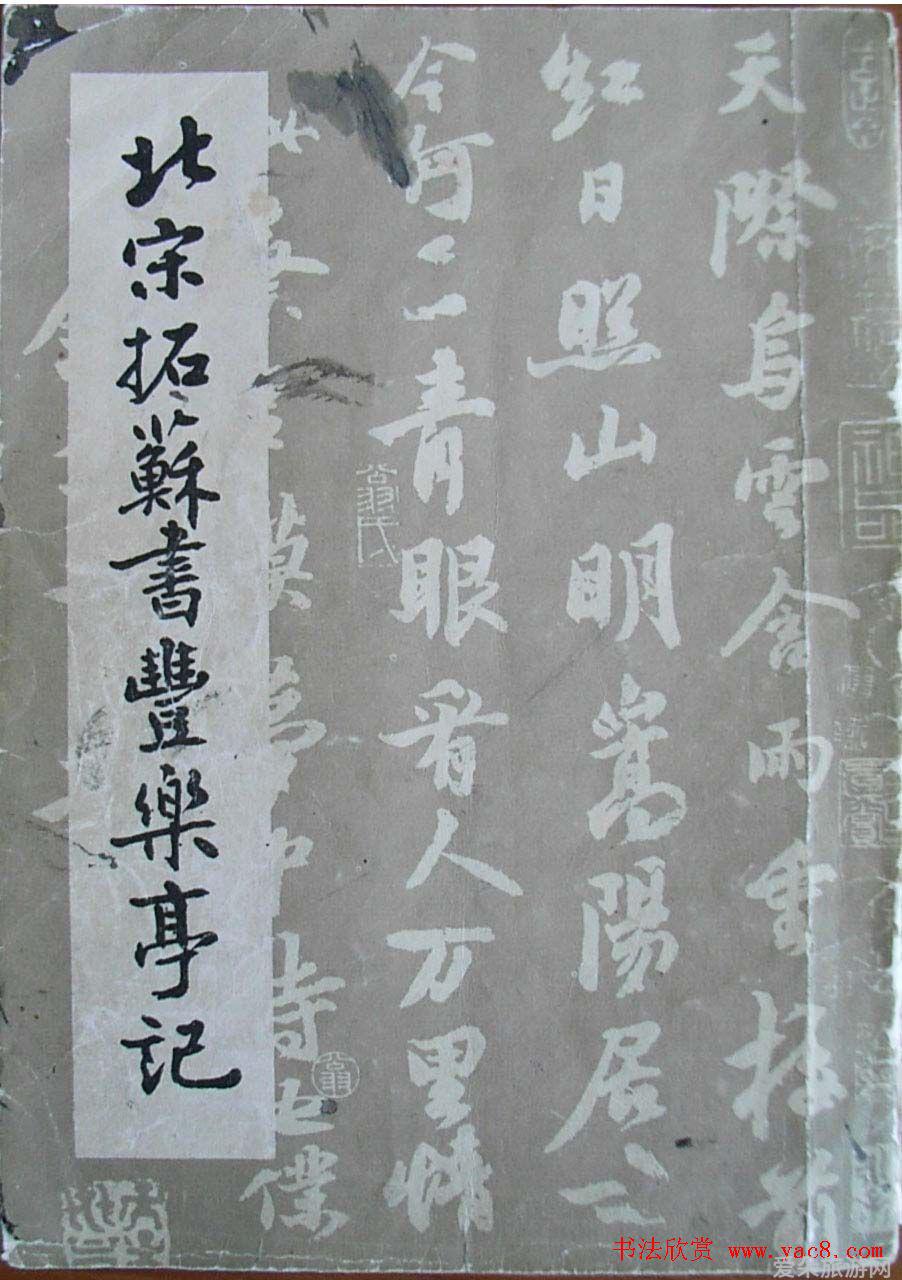 天際烏雲含雨重樓前
紅日照山明嵩陽居士
今何在青眼看人万里情
詩也僕
北宋拓蘇書豐樂亭記
书法欣赏 www.yac8.com
旅游网